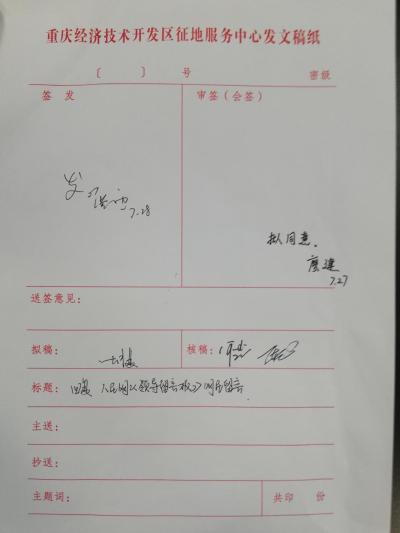 重庆经济技术开发区征地服务中心发文稿纸
〔 〕 号 密级
签 发
审签（会签）
发
7.28
拟同意.
7.27
送签意见：
拟稿：
核稿：
标题：回复 人民网《领导留言板》网民留言
主送：
抄送：
主题词：
共印 份